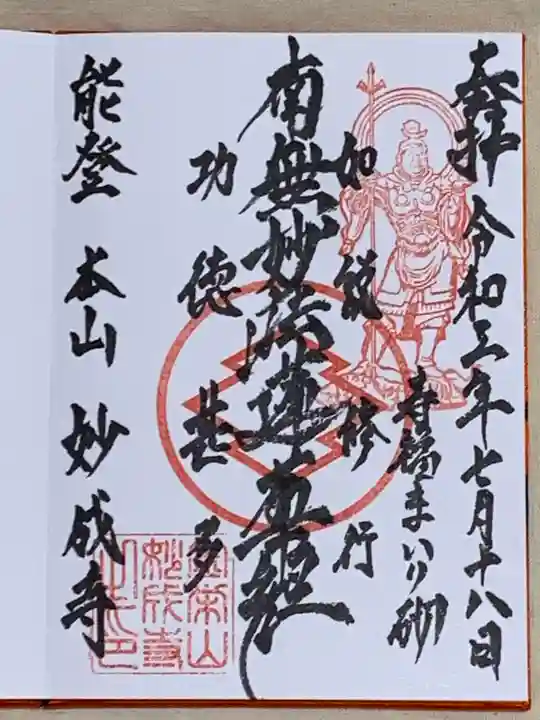 奉拝 令和三年七月十八日
寿福まいり砌
如説修行
南無妙法蓮華経
功徳甚多
能登 本山 妙成寺
金栄山
妙成寺
之印